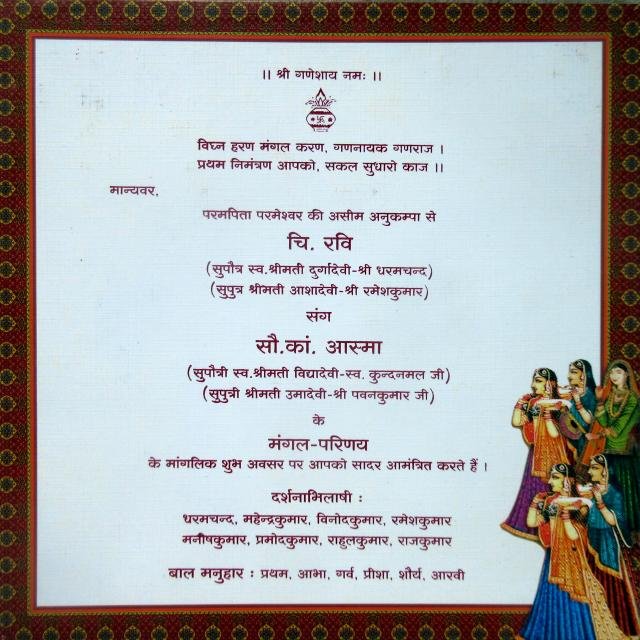 ।। श्री गणेशाय नमः ।।
विघ्न हरण मंगल करण, गणनायक गणराज ।
प्रथम निमंत्रण आपको, सकल सुधारो काज ।।
मान्यवर,
परमपिता परमेश्वर की असीम अनुकम्पा से
चि. रवि
(सुपौत्र स्व.श्रीमती दुर्गादेवी-श्री धरमचन्द)
(सुपुत्र श्रीमती आशादेवी-श्री रमेशकुमार)
संग
सौ.कां. आस्मा
(सुपौत्री स्व.श्रीमती विद्यादेवी-स्व. कुन्दनमल जी)
(सुपुत्री श्रीमती उमादेवी-श्री पवनकुमार जी)
के
मंगल-परिणय
के मांगलिक शुभ अवसर पर आपको सादर आमंत्रित करते हैं ।
दर्शनाभिलाषी :
धरमचन्द, महेन्द्रकुमार, विनोदकुमार, रमेशकुमार
मनीषकुमार, प्रमोदकुमार, राहुलकुमार, राजकुमार
बाल मनुहार : प्रथम, आभा, गर्व, प्रीशा, शौर्य, आरवी